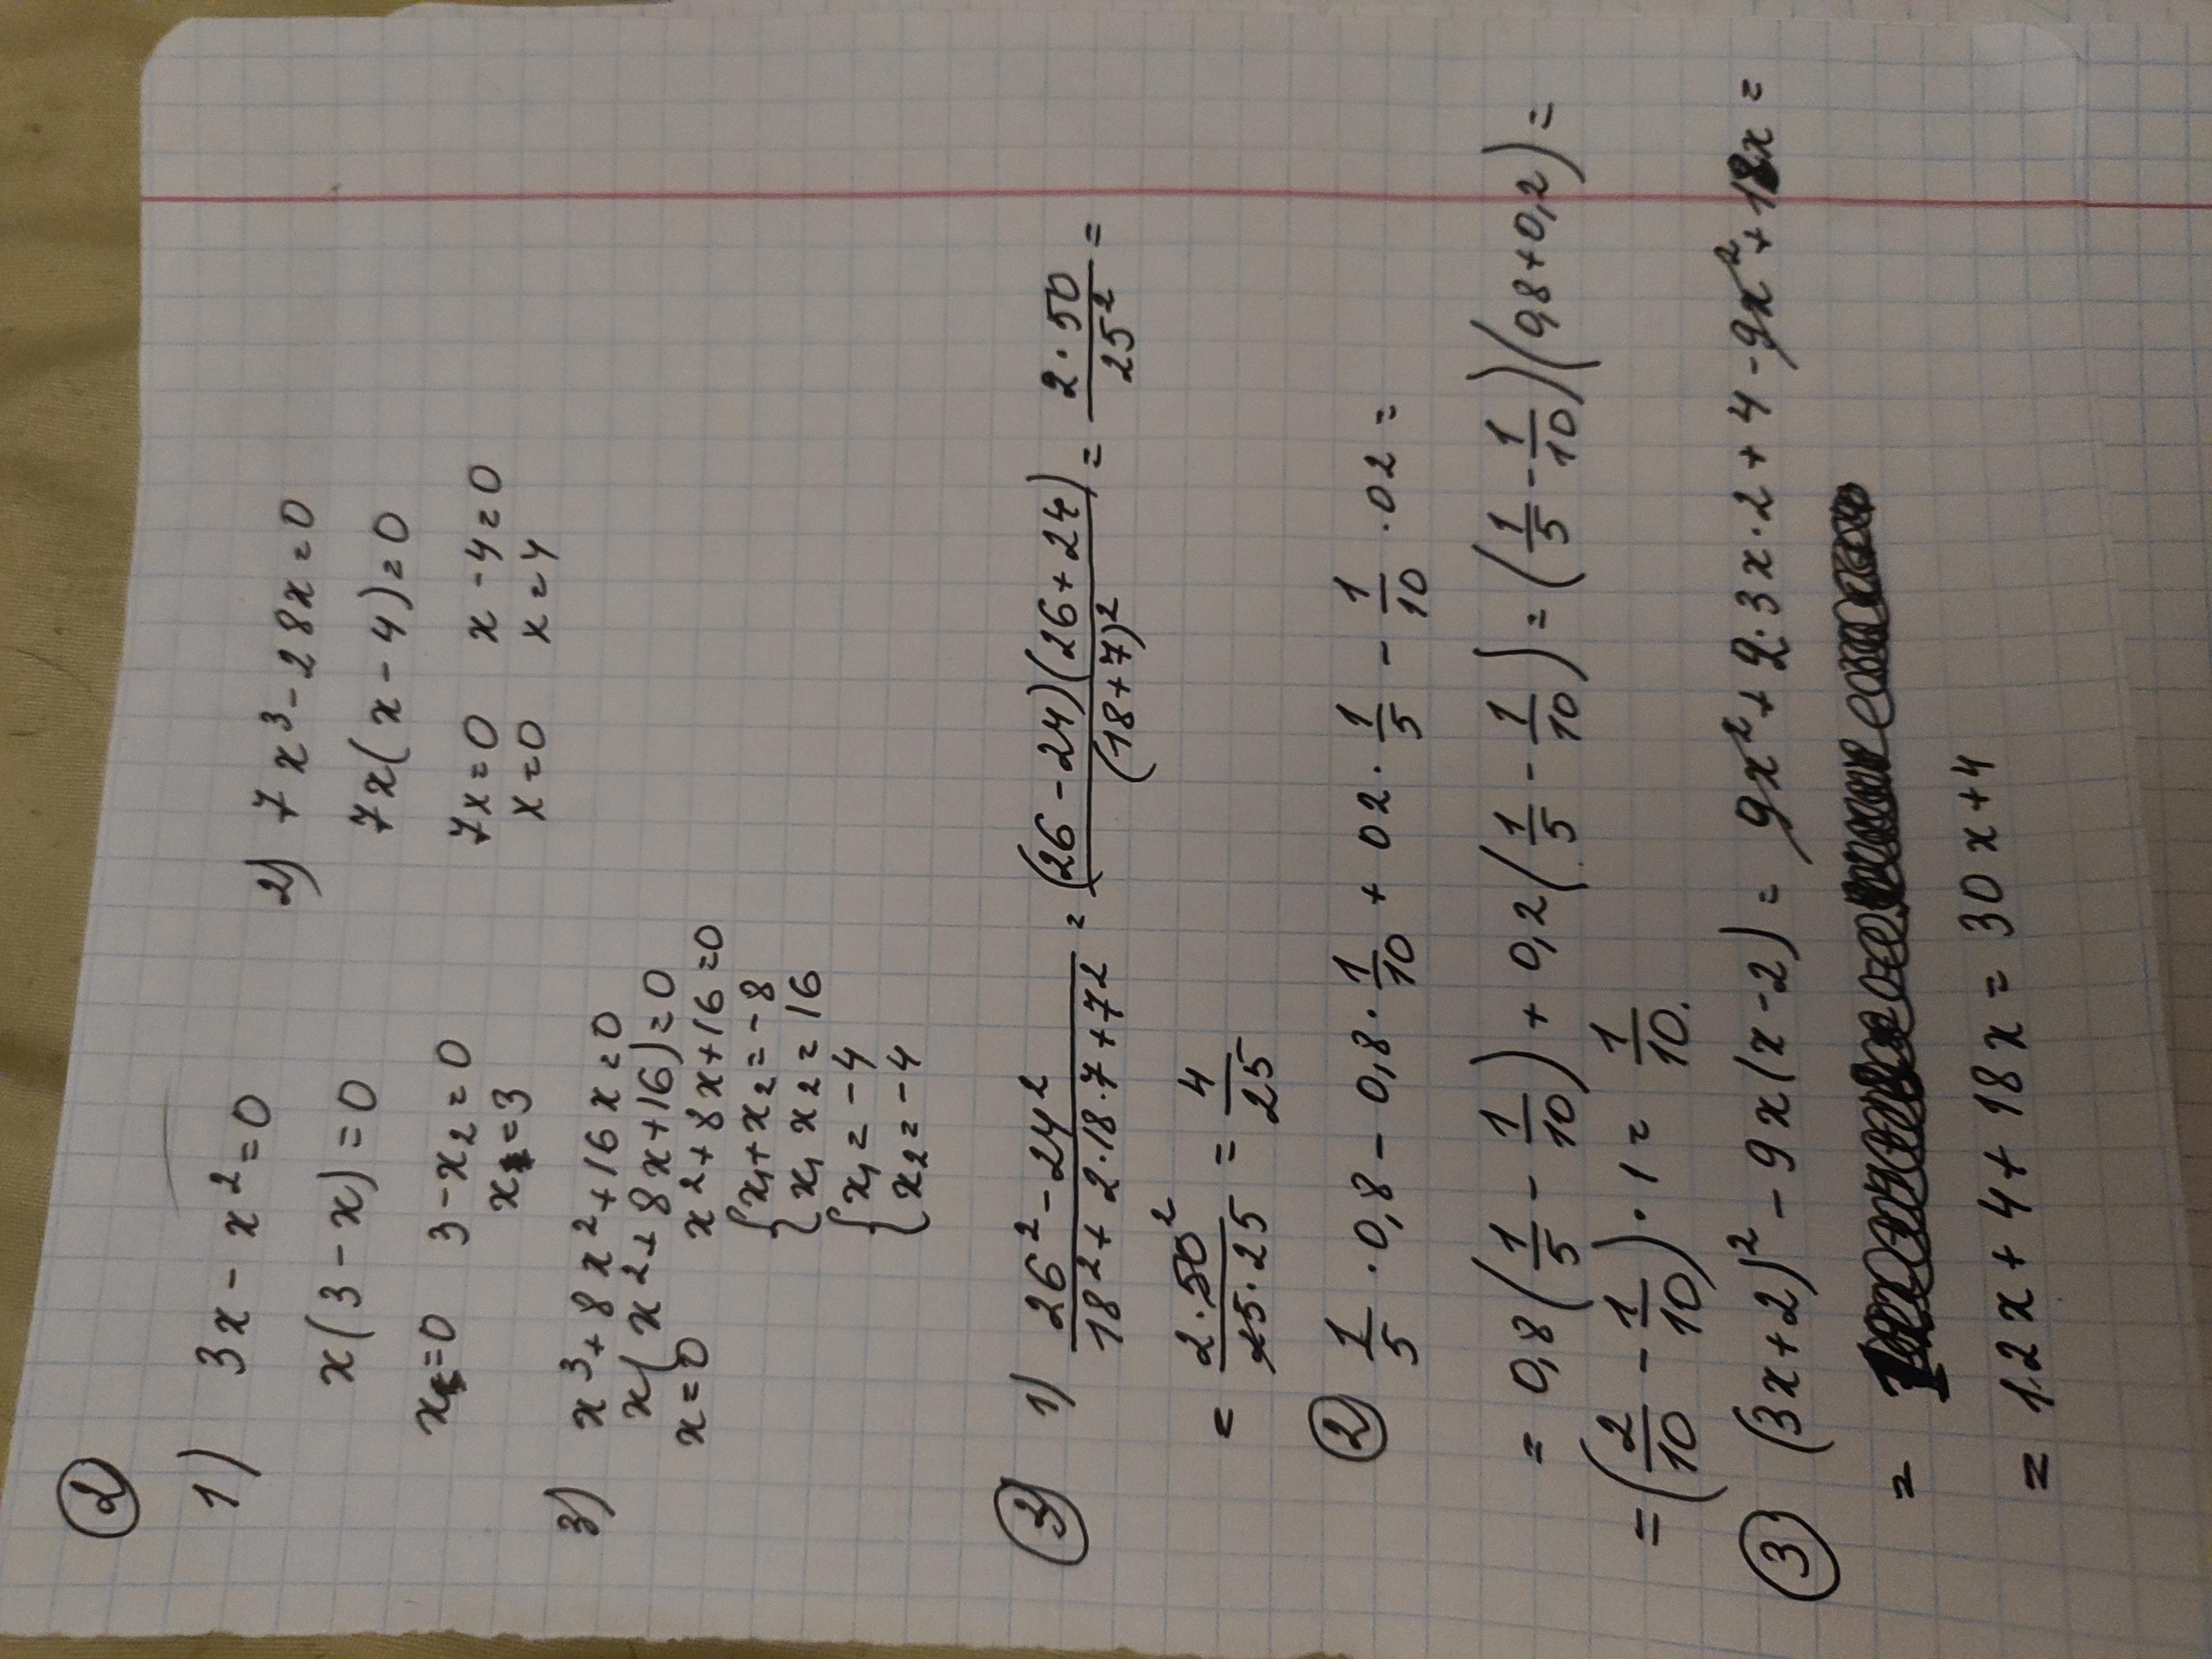 ②
1) 3x - x² = 0
x(3 - x) = 0
x=0 3-x₂=0
x=3
2) 7x³ - 28x = 0
7x(x - 4) = 0
7x=0 x-4=0
x=0 x=4
3) x³ + 8x² + 16x = 0
x(x² + 8x + 16) = 0
x=0 x² + 8x + 16 = 0
{x₁ + x₂ = -8
{x₁ x₂ = 16
{x₁ = -4
{x₂ = -4
③ 1) (26² - 24²)/(18² + 2·18·7 + 7²) = ((26 - 24)(26 + 24))/((18+7)²) = (2·50)/(25²) =
= (2·50²)/(25·25) = 4/25
② 1/5 · 0,8 - 0,8 · 1/10 + 02 · 1/5 - 1/10 · 02 =
= 0,8(1/5 - 1/10) + 0,2(1/5 - 1/10) = (1/5 - 1/10)(0,8 + 0,2) =
= (2/10 - 1/10) · 1 = 1/10.
③ (3x+2)² - 9x(x-2) = 9x² + 2·3x·2 + 4 - 9x² + 18x =
=
= 12x + 4 + 18x = 30x + 4